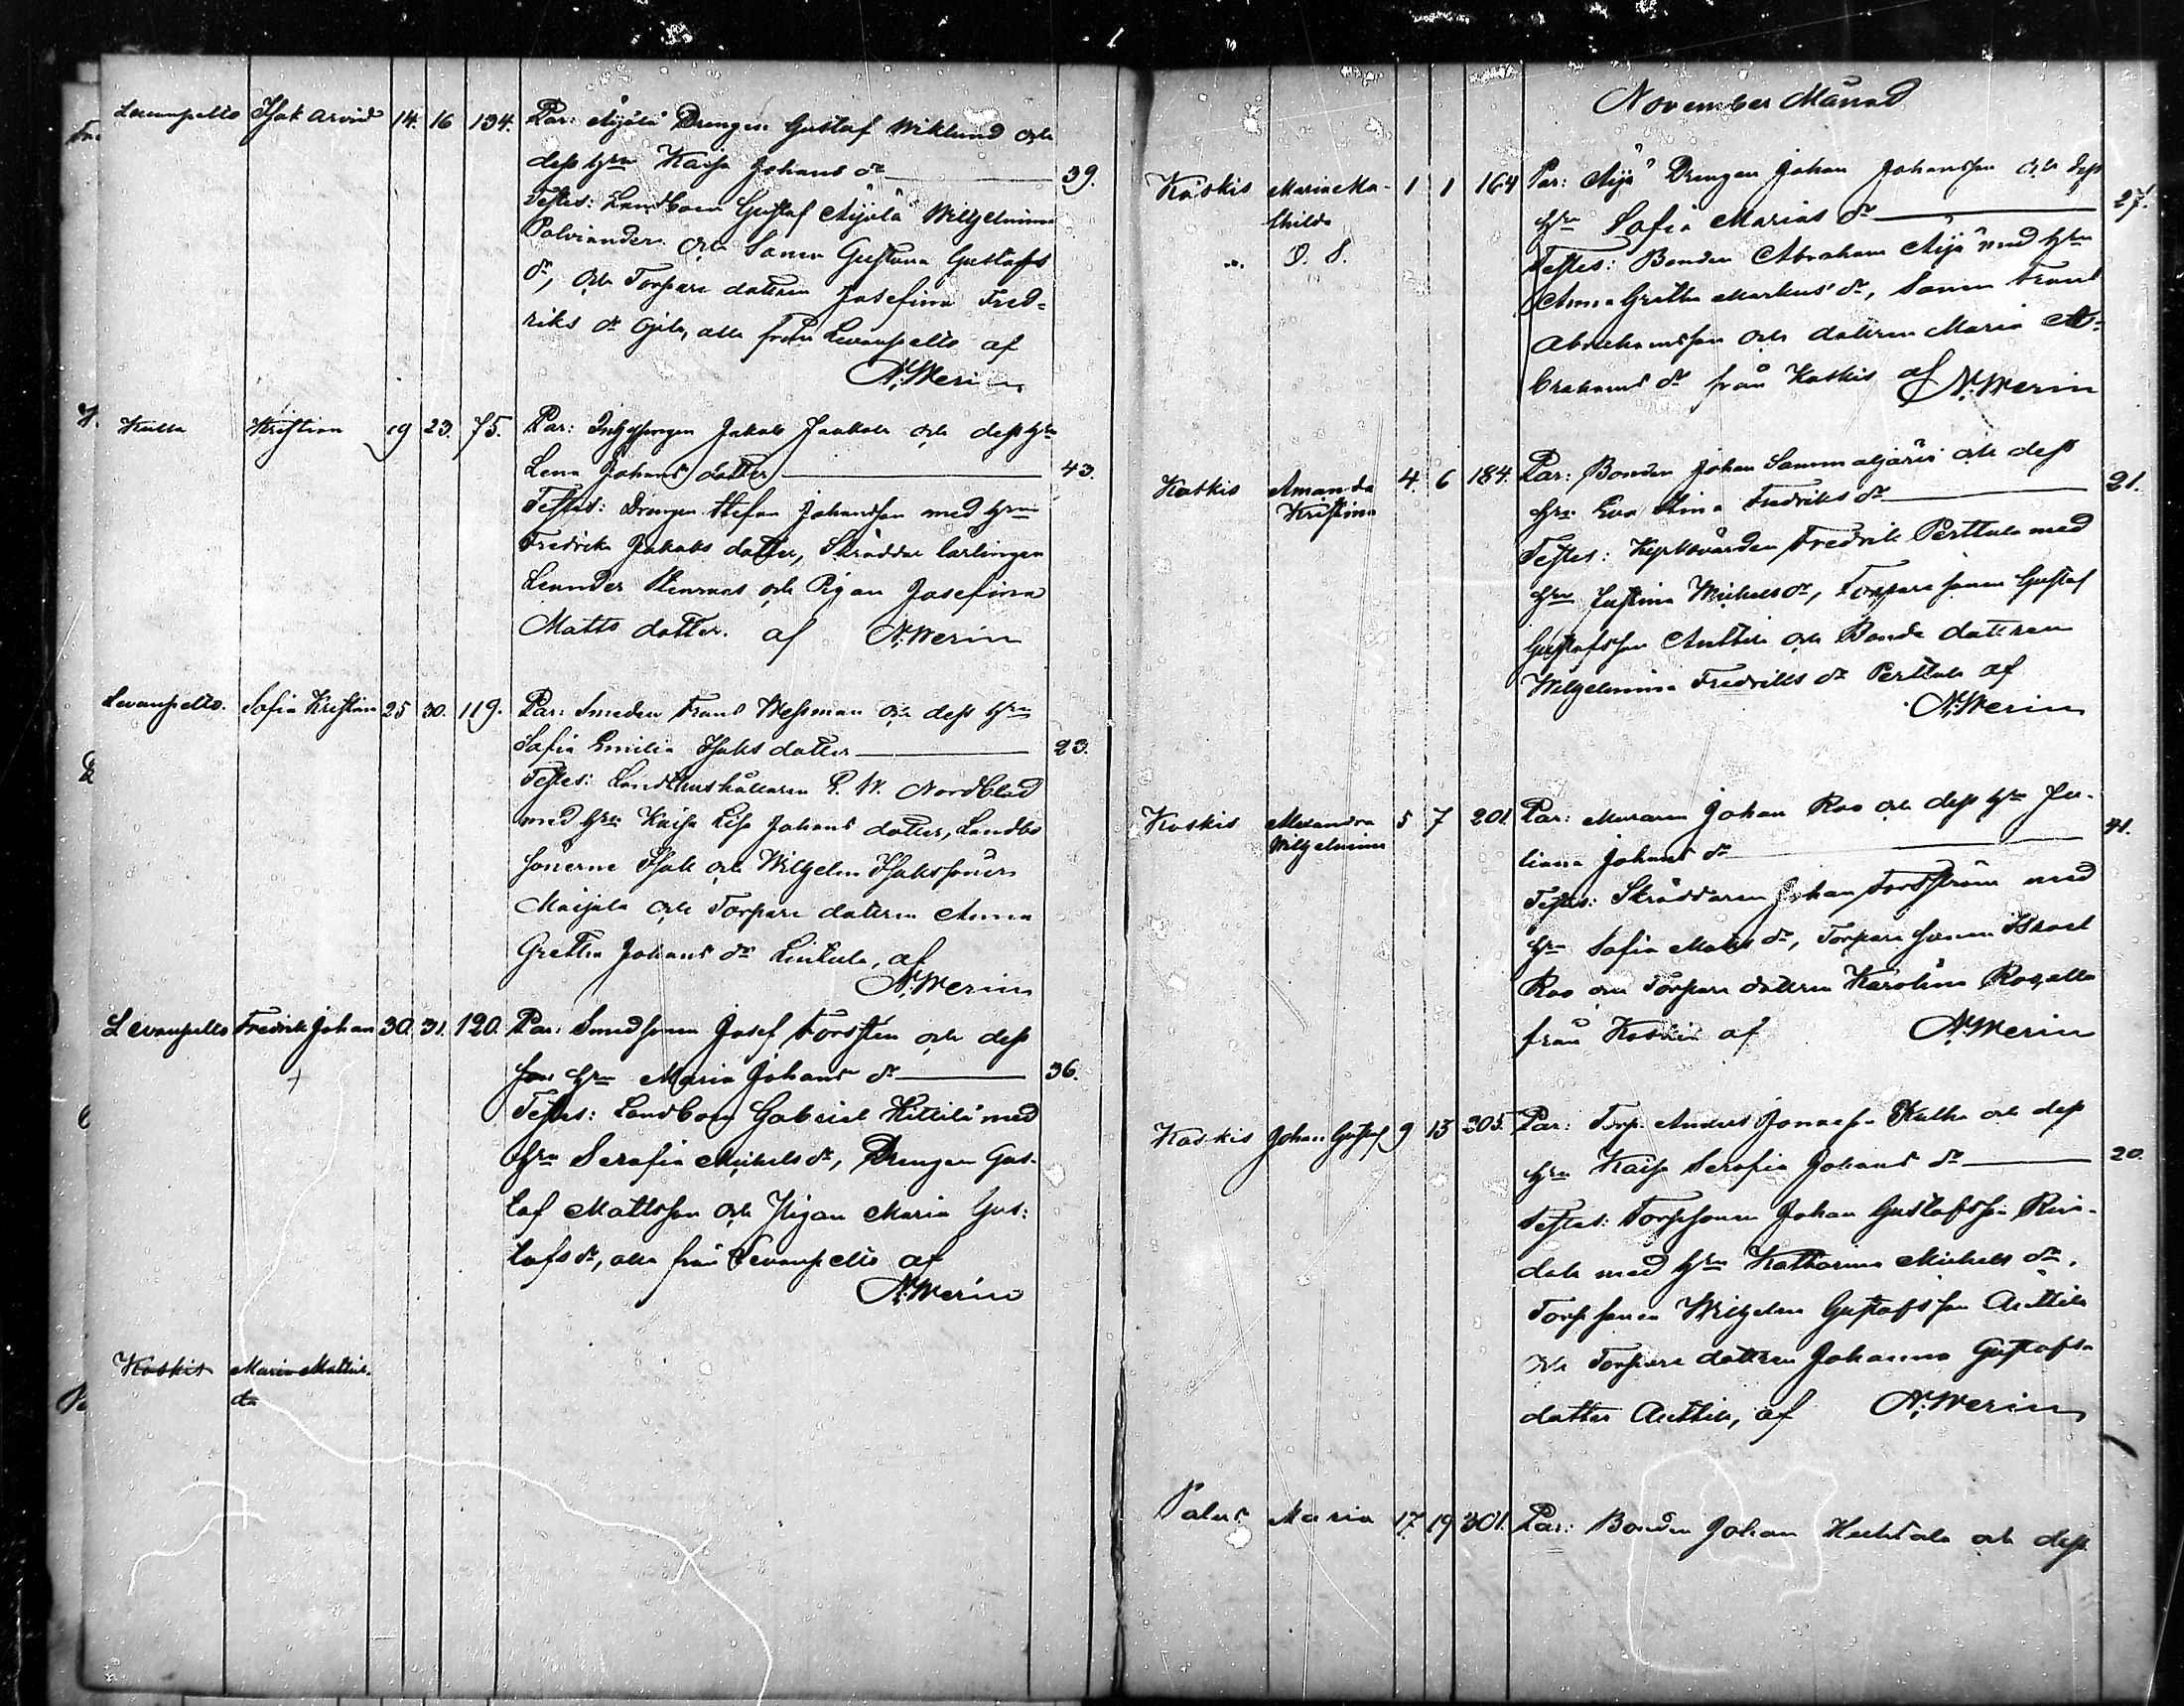 Levanpelto Isak Arvid 14. 16 134. Par: Äijälä Drengen Gustaf Wiklund och
dess hru Kaisa Johans dr 39.
Testes: Landboen Gustaf Äijälä Wilhelmina
Palviander och Sonen Gustava Gustafs
dr, och Torpare dottren Josefina Fred-
riks dr Ojila, alla från Levanpelto af
N. Werin
Kulla Kristian 19 23. 75. Par: Inhysingen Jakob Jaakola och dess hru
Lena Johans dotter 43.
Testes: Drengen Stefan Johansson med hru
Fredrika Jakobs dotter, Skräddar lärlingen
Leander Stenroos och Pigan Josefina
Matts dotter. af N. Werin
Levanpelto. Sofia Kristina 25 30. 119. Par: Smeden Frans Wessman och dess hru
Sofia Emilia Isaks dotter 23.
Testes: Landthushållaren G. W. Nordblad
med hru Kaisa Lisa Johans dotter, Landbo
sönerne Isak och Wilhelm Isakssöner
Maijala och Torpare dottren Anna
Gretha Johans dr Lintula, af
N. Werin
Levanpelto Fredrik Johan 30. 31. 120. Par: Smedsonen Josef Forstén och dess
hru Maria Johans dr 36.
Testes: Landboen Gabriel Kittilä med
hru Serafia Michels dr, Drengen Gus-
taf Mattsson och Pigan Maria Gus-
tafs dr, alla från Levanpelto af
N. Werin
Koskis Maria Mathil-
da
November Månad
Koskis Maria Ma- 1 1 164 Par: Äijä Drengen Johan Johansson och dess
thilda hru Sofia Marias dr 27.
O. S. Testes: Bonden Abraham Äijä med hru
Anna Gretha Markus dr, Sonen Frans
Abrahamsson och dottren Maria A-
brahams dr från Koskis af N. Werin
Koskis Amanda 4. 6 184. Par: Bonden Johan Sammaljärvi och dess
Kristina hru Eva Stina Fredriks dr 21.
Testes: Kyrkovärden Fredrik Perttula med
hru Justina Michels dr, Torpare sonen Gustaf
Gustafsson Anttila och Bonde dottren
Wilhelmina Fredriks dr Perttula af
N. Werin
Koskis Alexandra 5 7 201. Par: Muraren Johan Roo och dess hru Ju-
Wilhelmina liana Johans dr 41.
Testes: Skräddaren Johan Forsström med
hru Sofia Matts dr, Torpare sonen Israel
Roo och Torpare dottren Karolina
från Koskis af N. Werin
Koskis Johan Gustaf 9 13 205. Par: Torp. Anders Jonasson Kulha och dess
hru Kaisa Serafia Johans dr 20.
Testes: Torpsonen Johan Gustafsson
med hru Katharina Michels dr,
Torpsonen Wilhelm Gustafsson Anttila
och Torpare dottren Johanna Gustafs-
dotter Anttila, af N. Werin
Palus Maria 17. 19 301. Par: Bonden Johan Huhtala och dess